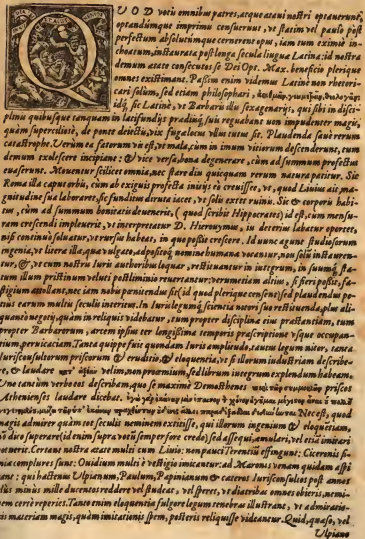 QUOD votis omnibus patres, atque atavi nostri optaverunt,
optandúmque imprimis censuerunt, ut statim vel paulo pòst
perfectum absolutúmque cernerent opus, iam tum eximiè in-
choatum, instaurata post longa secula lingua Latina: id nostra
demum ætate consecutos se Dei Opt. Max. beneficio plerique
omnes existimant. Passim enim videmus Latinè non rhetori-
cari solùm, sed etiam philosophari,
idq́; sic Latinè, ut Barbaris illis sexagenarijs, qui sibi in disci-
plinis quibusque tanquam in latifundijs prædiisq́; suis regnabant non impudenter magis,
quàm superciliosè, de ponte deiectis, vix fuga locus ullus tutus sit. Plaudenda sanè rerum
catastrophe. Verùm ea fatorum vis est, ut mala, cùm in imum vitiorum descenderunt, tum
demum exolescere incipiant: & vice versa, bona degenerare, cùm ad summum profectus
evaserunt. Moventur scilicet omnia, nec stare diu quicquam rerum natura patitur. Sic
Roma illa caput orbis, cùm ab exiguis profecta initijs eò crevisset, ut, quod Livius ait, ma-
gnitudine sua laboraret, sic funditus diruta iacet, ut solùm extet ruinis. Sic & corporis habi-
tus, cùm ad summum bonitatis devenerit, (quod scribit Hippocrates) id est, cùm mensu-
ram crescendi impleverit, ut interpretatur D. Hieronymus, in deterius labatur oportet,
nisi continuò solvatur, ut rursus habeat, in quo possit crescere. Id nunc agunt studiosorum
ingenia, ut literæ illæ, quæ vulgò, ad postq́; nomine humanæ vocantur, non solùm instauren-
tur, &, ut cum nostris Iuris authoribus loquar, restituantur in integrum, in suumq́; sta-
tum illum pristinum veluti postliminio revertantur: verumetiam altius, si fieri possit, fa-
stigium attollant, nec iam nobis pœnitendum sit (id quod plerique censent) sed plaudendum po-
tius earum multis seculis interitus. In Iuris legumq́; scientia
quanto negotij, quàm in reliquis videbatur, tum propter disciplinæ eius præstantiam, tum
propter Barbarorum, artem ipsius ter longissimi temporis præscriptione usque occupan-
tium, pervicaciam. Tanta quippe fuit quondam Iuris amplitudo, tanta legum nitor, tanta
Iurisconsultorum priscorum & eruditio, & eloquentia, ut si illorum industriam describe-
re, & laudare κατ' ἀξίαν velim, non proœmium, sed librum integrum explendum habeam.
Uno tantùm verbo eos describam, quo se maximè Demosthenes priscos
Athenienses laudare dicebat.
Nec est, quod
magis admirer quàm tot seculis neminem extitisse, qui illorum ingenium & eloquentiam,
non dico superare (id enim supra votum semper fore credo) sed assequi, æmulari, vel etiam imitari
potuerit. Certant nostra ætate multi cum Livio: non pauci Terentium effingunt: Ciceronis si-
mia complures sunt: Ovidium multi è vestigio imitantur: ad Maronis venam quidam aspi-
rant: qui hactenus Ulpianum, Paulum, Papinianum & cæteros Iurisconsultos post annos
plus minùs mille ducentos reddere vel studeat, vel speret, ut diatribas omnes obieris, nemi-
nem certè reperies. Tanto enim eloquentiæ fulgore legum tenebras illustrant, ut admiratio-
nis materiam magis, quàm imitationis spem, posteris reliquisse videantur. Quid, quæso, vel
Ulpiano